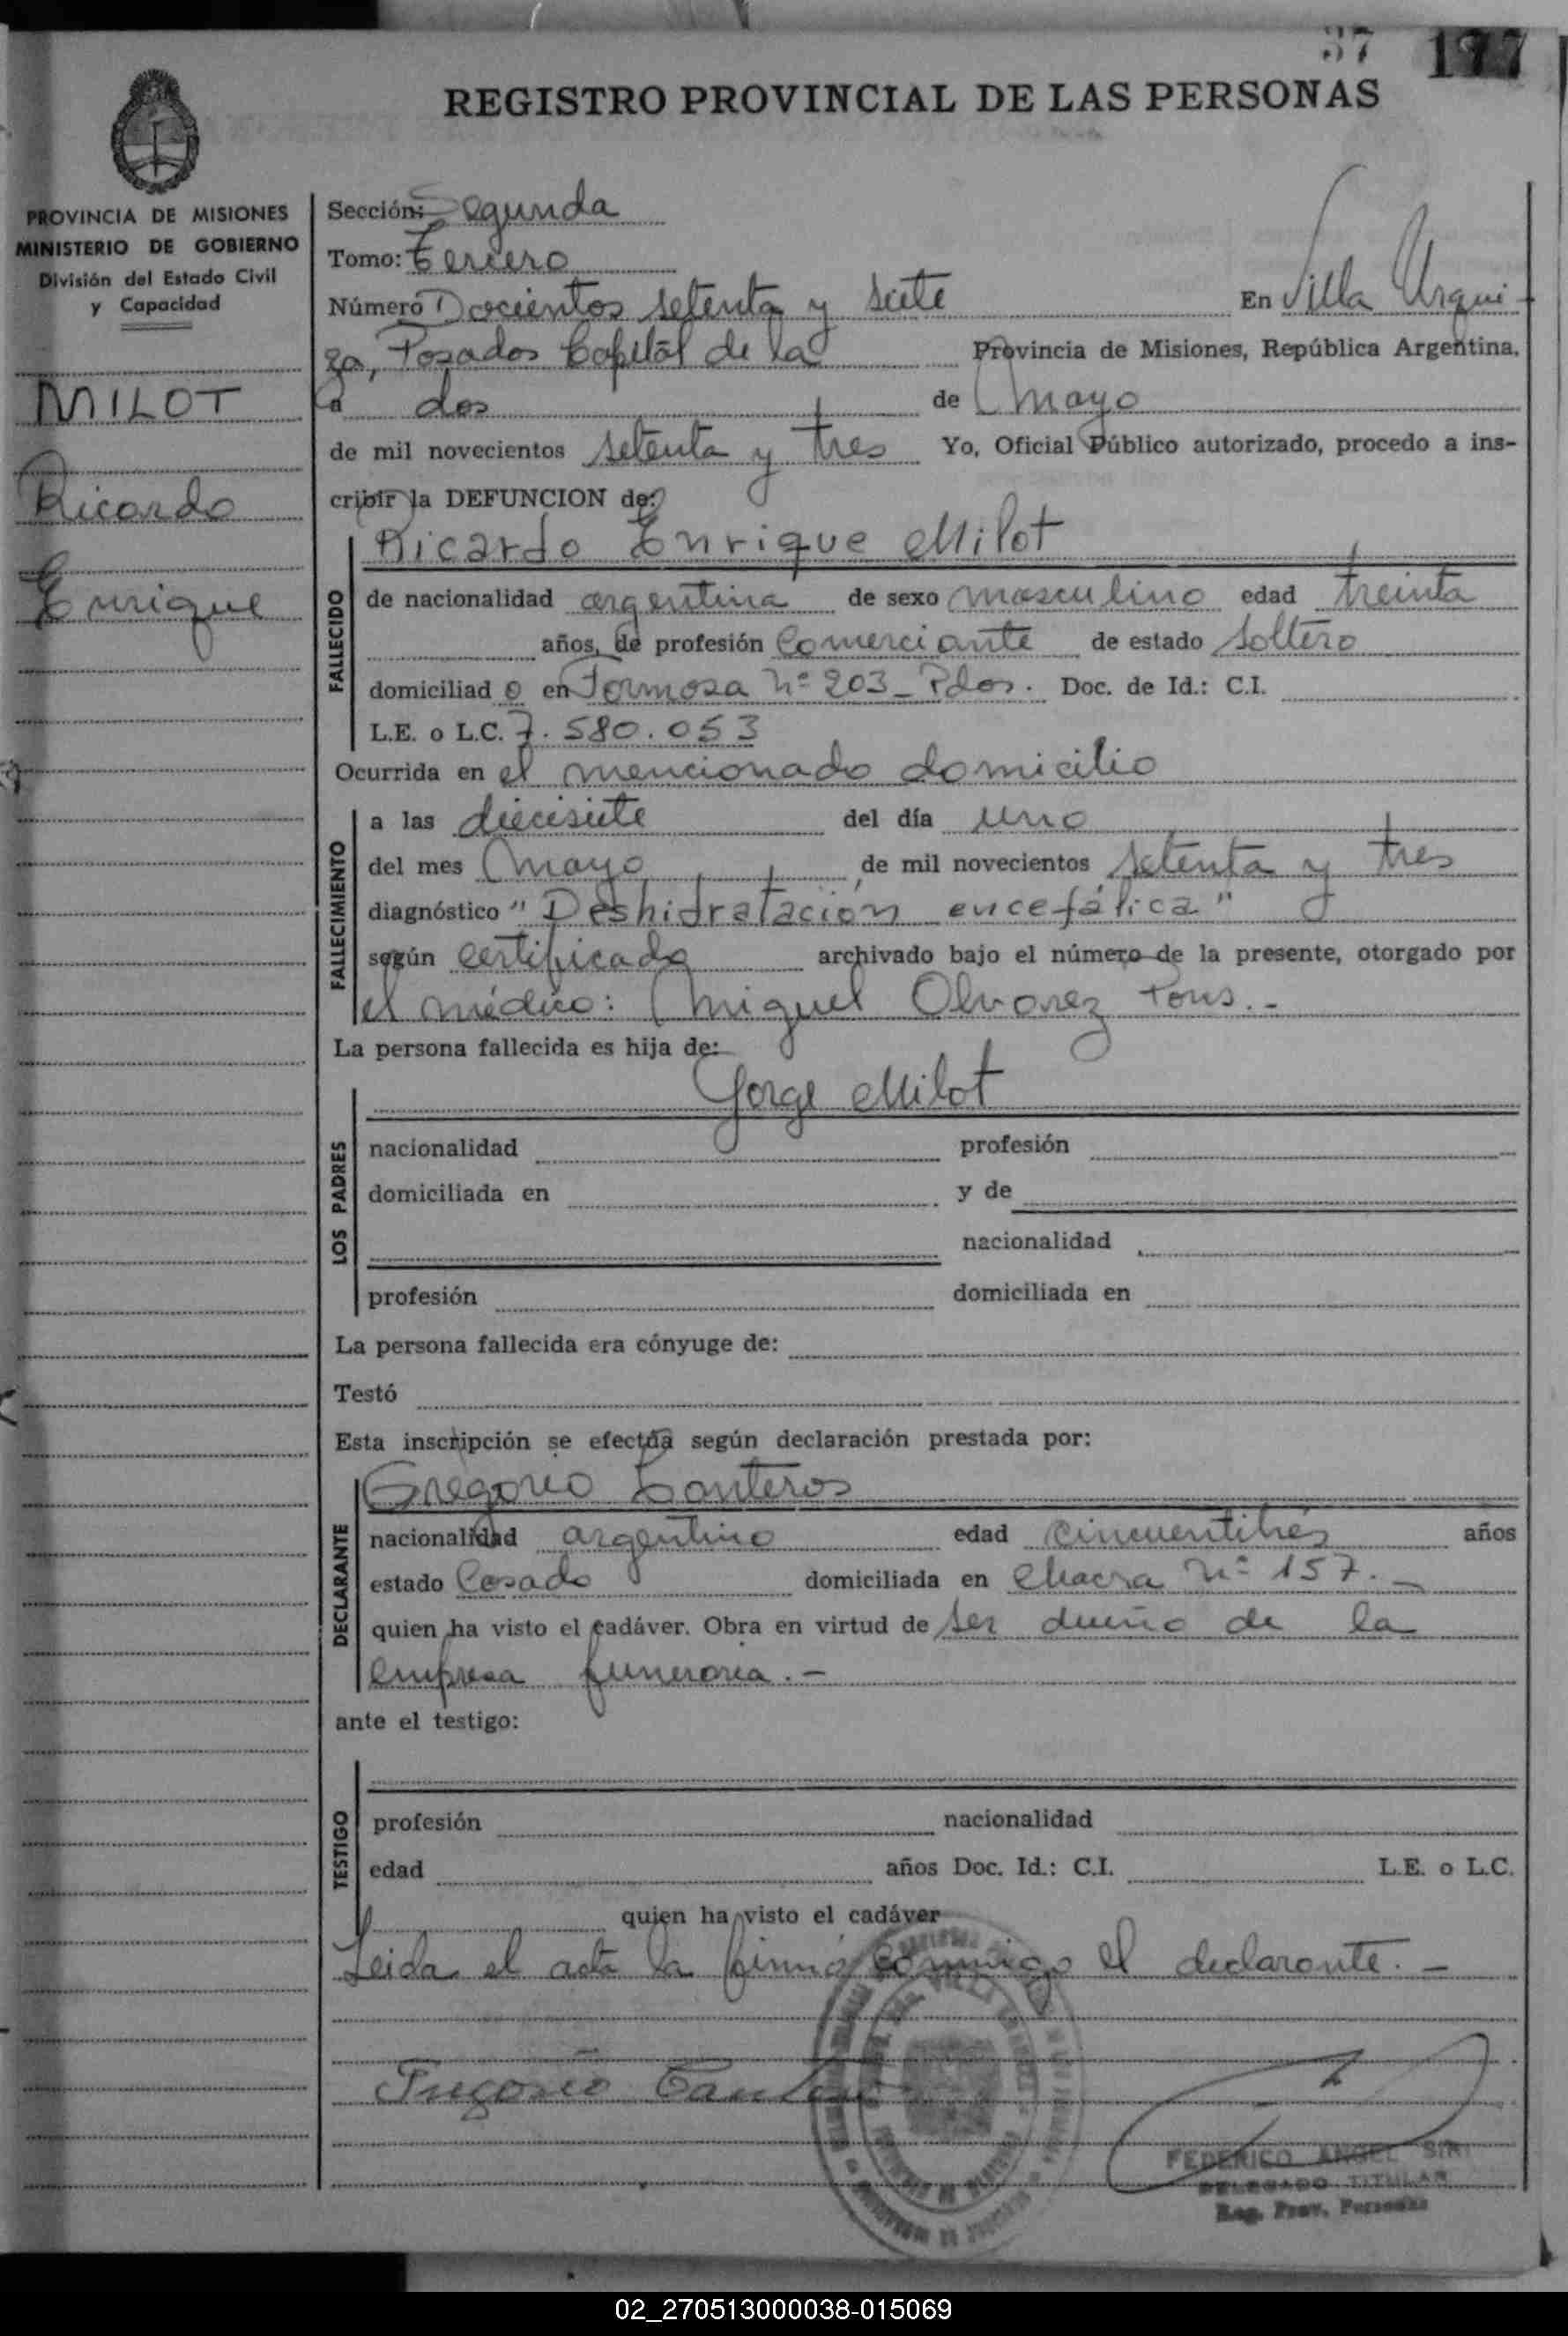 37 177
REGISTRO PROVINCIAL DE LAS PERSONAS
PROVINCIA DE MISIONES
MINISTERIO DE GOBIERNO
División del Estado Civil
y Capacidad
MILOT
Ricardo
Enrique
Sección: Segunda
Tomo: Tercero
Número Doscientos setenta y siete En Villa Urqui-
za, Posadas Capital de la Provincia de Misiones, República Argentina,
a dos de mayo
de mil novecientos setenta y tres Yo, Oficial Público autorizado, procedo a ins-
cribir la DEFUNCION de:
Ricardo Enrique Milot
FALLECIDO
de nacionalidad argentina de sexo masculino edad treinta
años, de profesión Comerciante de estado soltero
domiciliad o en Formosa Nº 203 - Pdas. Doc. de Id.: C.I.
L.E. o L.C. 7.580.053
Ocurrida en el mencionado domicilio
FALLECIMIENTO
a las diecisiete del día uno
del mes mayo de mil novecientos setenta y tres
diagnóstico "Deshidratación encefálica"
según certificado archivado bajo el número de la presente, otorgado por
el médico: Miguel Alvarez Pons.-
La persona fallecida es hija de:
Jorge Milot
LOS PADRES
nacionalidad profesión
domiciliada en y de
nacionalidad
profesión domiciliada en
La persona fallecida era cónyuge de:
Testó
Esta inscripción se efectúa según declaración prestada por:
DECLARANTE
Gregorio Canteros
nacionalidad argentino edad cincuentitrés años
estado Casado domiciliada en Chacra Nº 157.-
quien ha visto el cadáver. Obra en virtud de ser dueño de la
empresa funeraria.-
ante el testigo:
TESTIGO
profesión nacionalidad
edad años Doc. Id.: C.I. L.E. o L.C.
quien ha visto el cadáver
Leida el acta la firmó conmigo el declarante.-
Gregorio Canteros
FEDERICO ANGEL SIRI
DELEGADO TITULAR
Reg. Prov. Personas
02_270513000038-015069